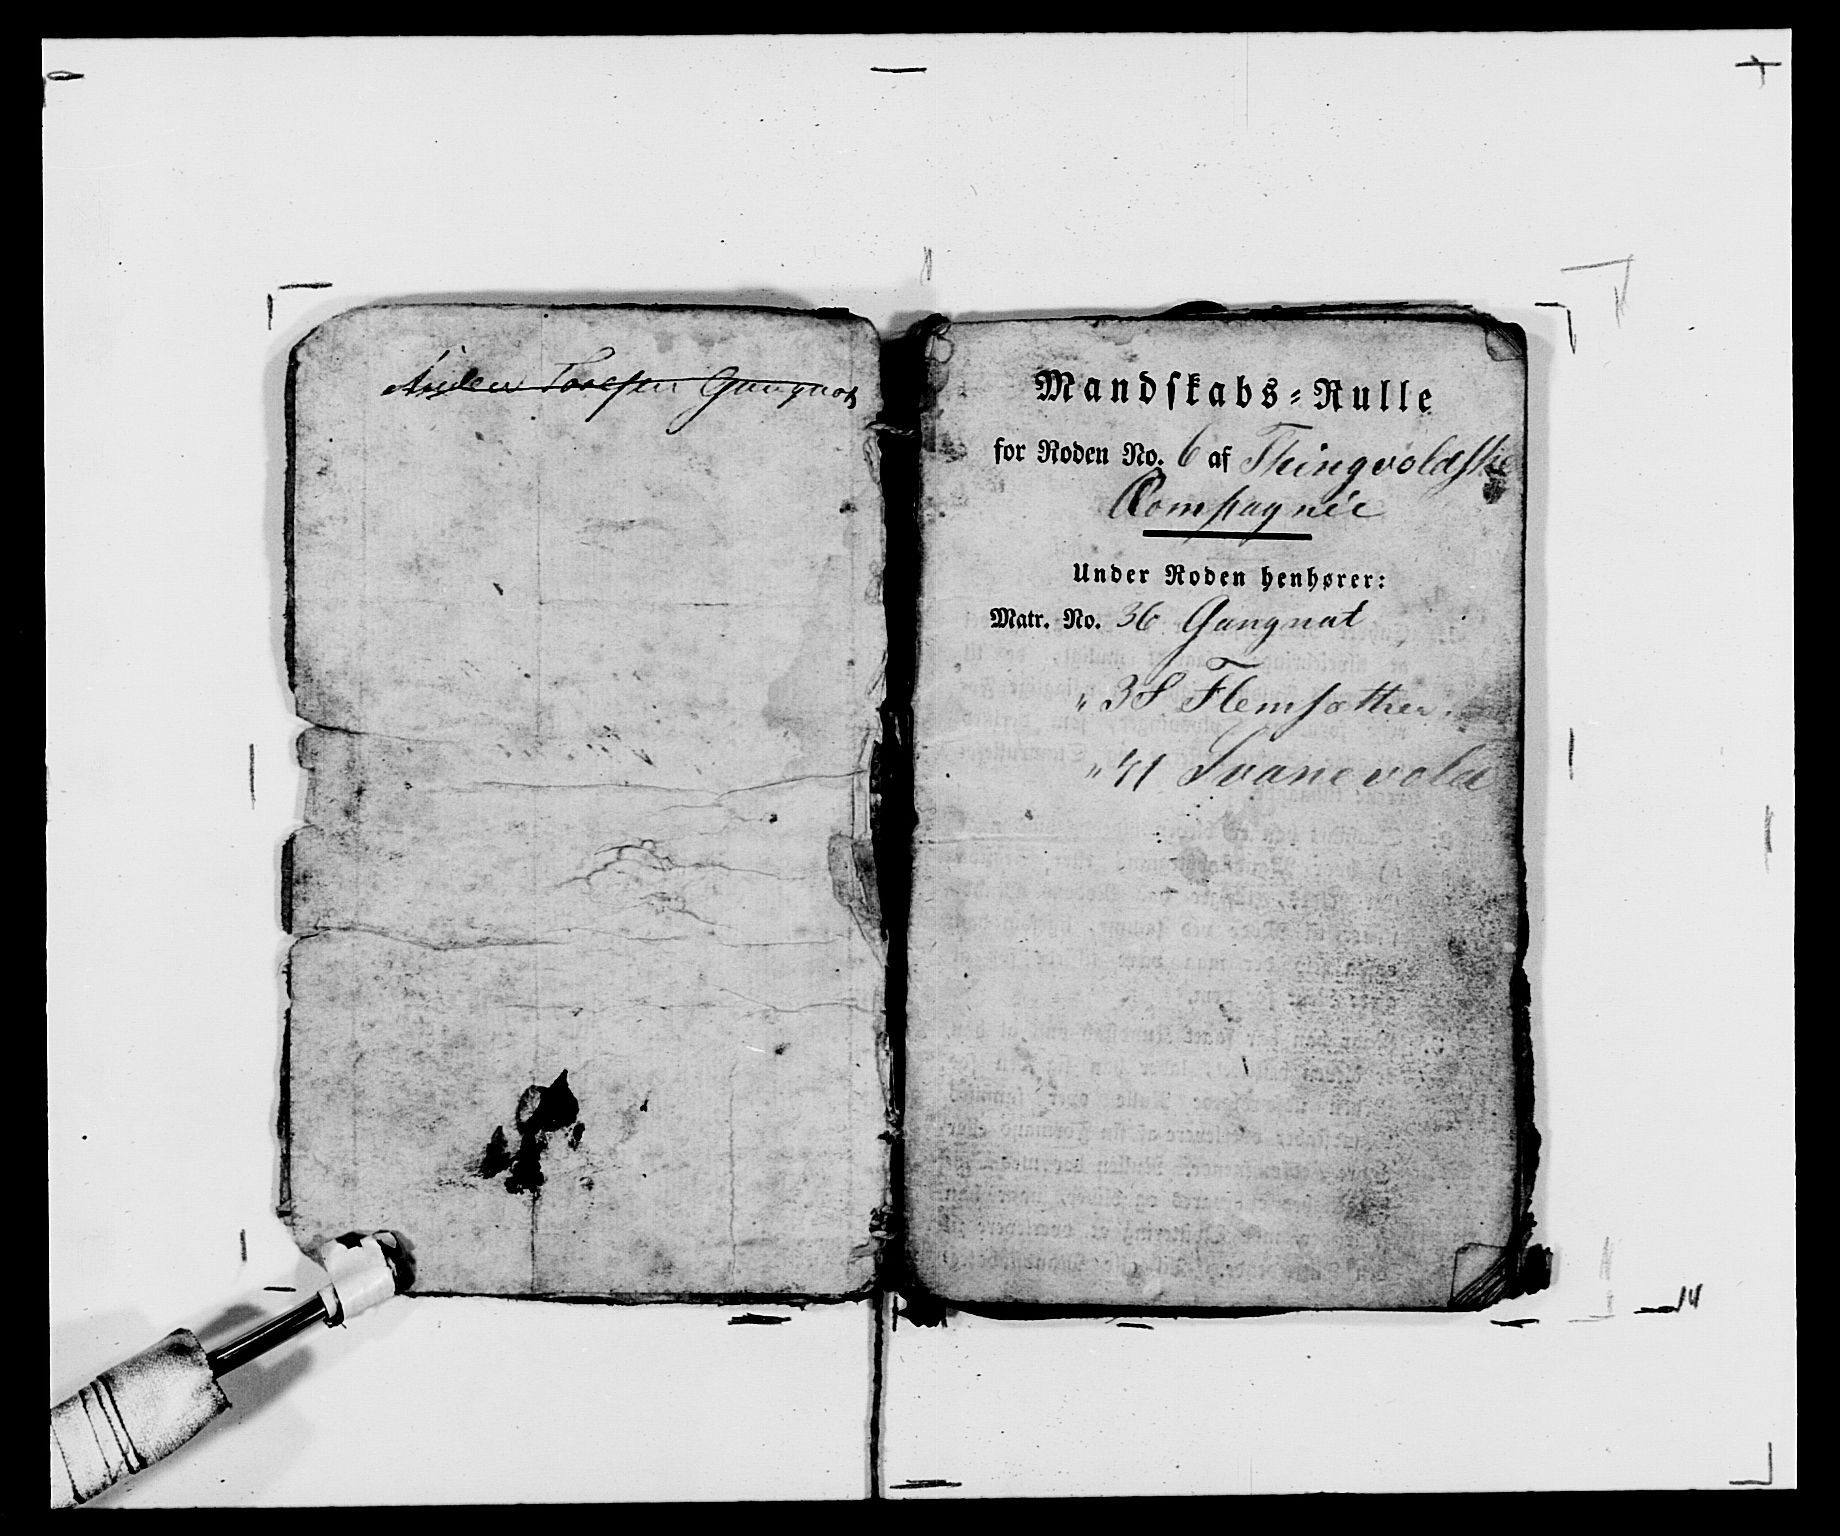 Gangnat
Mandskabs-Rulle
for Roden No. 6 af Thingvoldske
Compagnie
Under Roden henhører:
Matr. No. 36 Gangnat
" 38 Flemsæther.
" 41 Svanevold
14